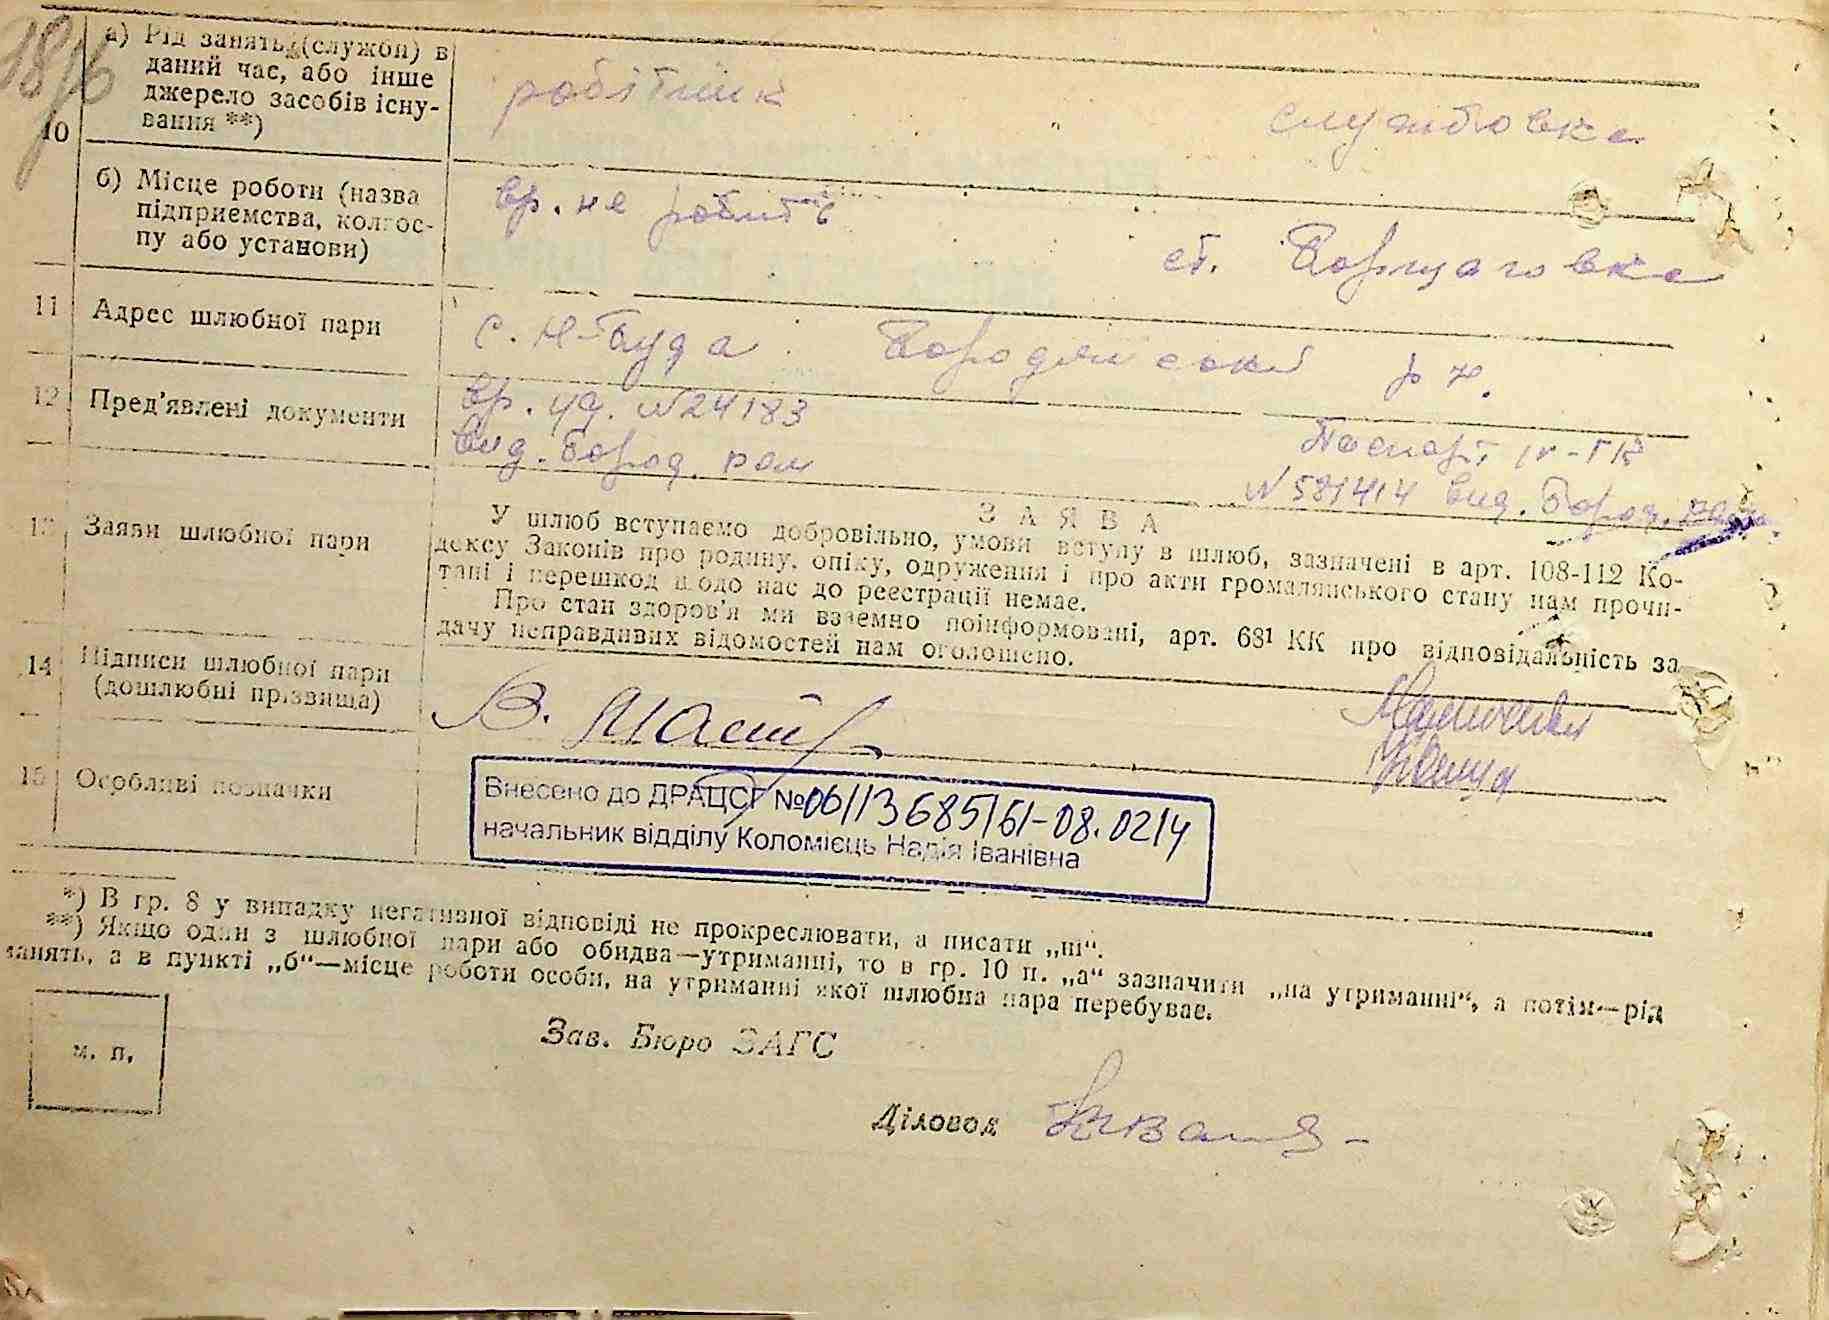 18/6
а) Рід занять (служби) в
даний час, або інше
джерело засобів існу-
вання **)
10
робітник
службовка
б) Місце роботи (назва
підприємства, колгос-
пу або установи)
вр. не робить
ст. Борщаговка
11 Адрес шлюбної пари
с. Н-Буда Бородянський р-н.
12 Пред'явлені документи
вр. уд. №24183
вид. Бород. рам
Паспорт
№581414 вид. Бород.
13 Заяви шлюбної пари
ЗАЯВА
У шлюб вступаємо добровільно, умови вступу в шлюб, зазначені в арт. 108-112 Ко-
дексу Законів про родину, опіку, одруження і про акти громадянського стану нам прочи-
тані і перешкод щодо нас до реєстрації немає.
Про стан здоров'я ми взаємно поінформовані, арт. 68¹ КК про відповідальність за
дачу неправдивих відомостей нам оголошено.
14 Підписи шлюбної пари
(дошлюбні прізвища)
В.
15 Особливі позначки
Внесено до ДРАЦСГ №
начальник відділу Коломієць Надія Іванівна
*) В гр. 8 у випадку негативної відповіді не прокреслювати, а писати „ні“.
**) Якщо один з шлюбної пари або обидва—утриманні, то в гр. 10 п. „а“ зазначити „на утриманні“, а потім—рід
занять, а в пункті „б“—місце роботи особи, на утриманні якої шлюбна пара перебуває.
м. п.
Зав. Бюро ЗАГС
Діловод